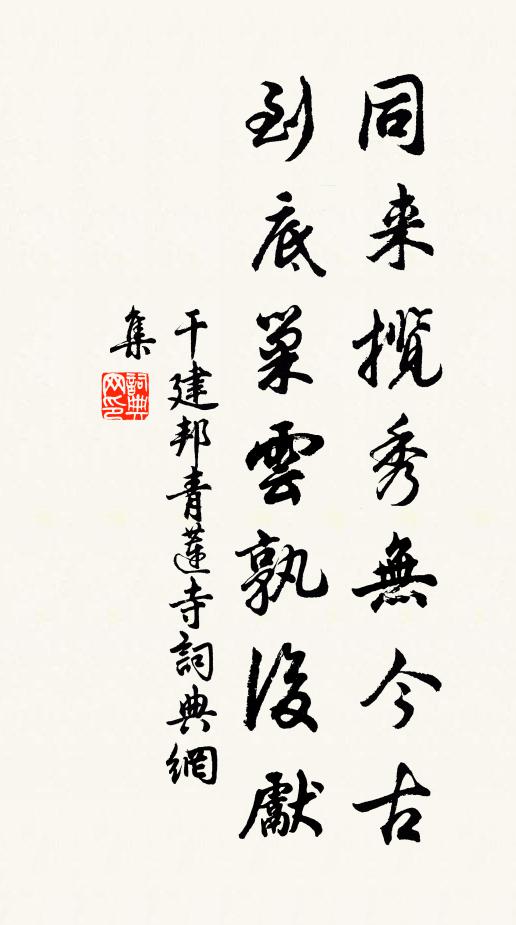 同来攬秀無今古
到底巢雲孰後獻
干建邦青蓮寺詞典網
集
詞典网印